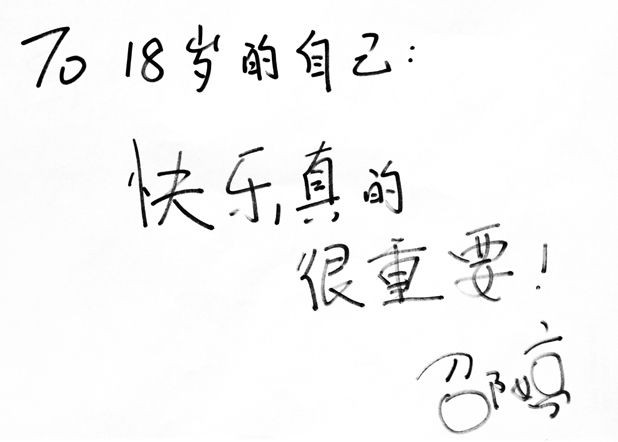 To 18岁的自己:
快乐真的
很重要!
邵婷